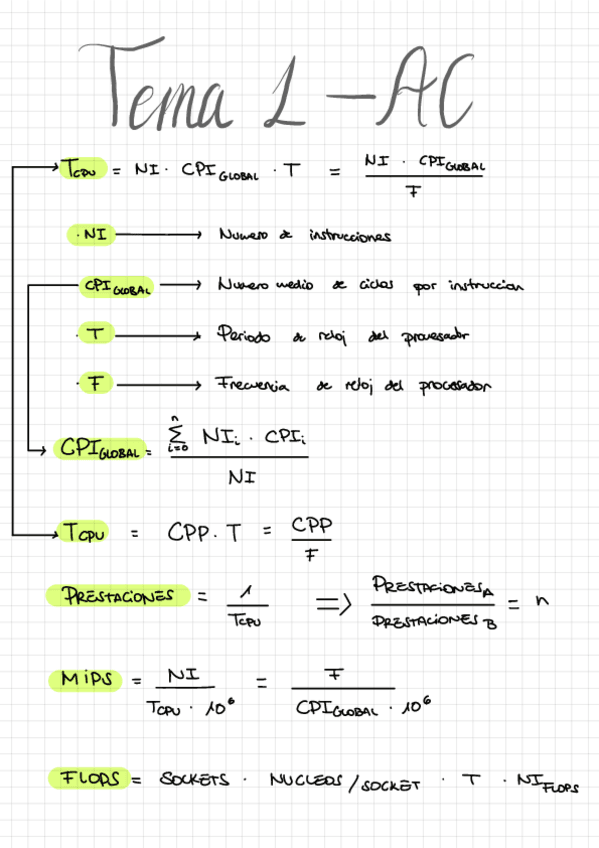 Tema 1 - AC
TCPU = NI · CPIGLOBAL · T = NI · CPIGLOBAL / F
· NI → Numero de instrucciones
CPIGLOBAL → Numero medio de ciclos por instruccion
· T → Periodo de reloj del procesador
· F → Frecuencia de reloj del procesador
CPIGLOBAL = n Σ i=0 NIi · CPIi / NI
TCPU = CPP · T = CPP / F
PRESTACIONES = 1 / TCPU => PRESTACIONESA / PRESTACIONESB = n
MiPS = NI / TCPU · 10⁶ = F / CPIGLOBAL · 10⁶
FLOPS = SOCKETS · NUCLEOS/SOCKET · T · NIFLOPS